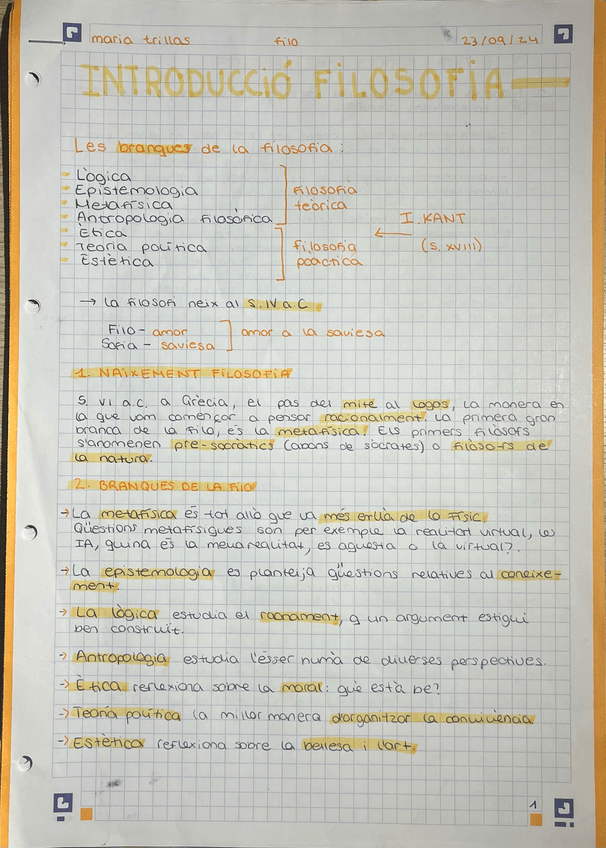 maria trillas filo 23/09/24
INTRODUCCIÓ FILOSOFIA
Les branques de la filosofia:
Lògica
Epistemologia
Metafísica
Antropologia filosòfica
filosofia
teòrica
Ètica
Teoria política
Estètica
filosofia
pràctica
I. KANT
(S. XVIII)
→ la filosofi neix al S. IV a C
Filo - amor
Sofia - saviesa
amor a la saviesa
1. NAIXEMENT FILOSOFIA
S. VI a.C. a Grècia, el pas del mite al logos, la manera en
la que vam començar a pensar racionalment. La primera gran
branca de la filo, és la metafísica! Els primers filòsofs
s'anomenen pre-socràtics (abans de sòcrates) o filòsofs de
la natura.
2. BRANQUES DE LA FILO
→ La metafísica és tot allò que va més enllà de lo físic.
Qüestions metafísiques son per exemple la realitat virtual, les
IA, quina és la meva realitat, es aquesta o la virtual?.
→ La epistemologia es planteija qüestions relatives al coneixe-
ment.
→ La lògica estudia el raonament, q un argument estigui
ben construit.
→ Antropologia estudia l'ésser humà de diverses perspectives.
→ Ètica reflexiona sobre la moral: què està be?
→ Teoria política la millor manera d'organitzar la convivència
→ Estètica reflexiona sobre la bellesa i l'art.
1